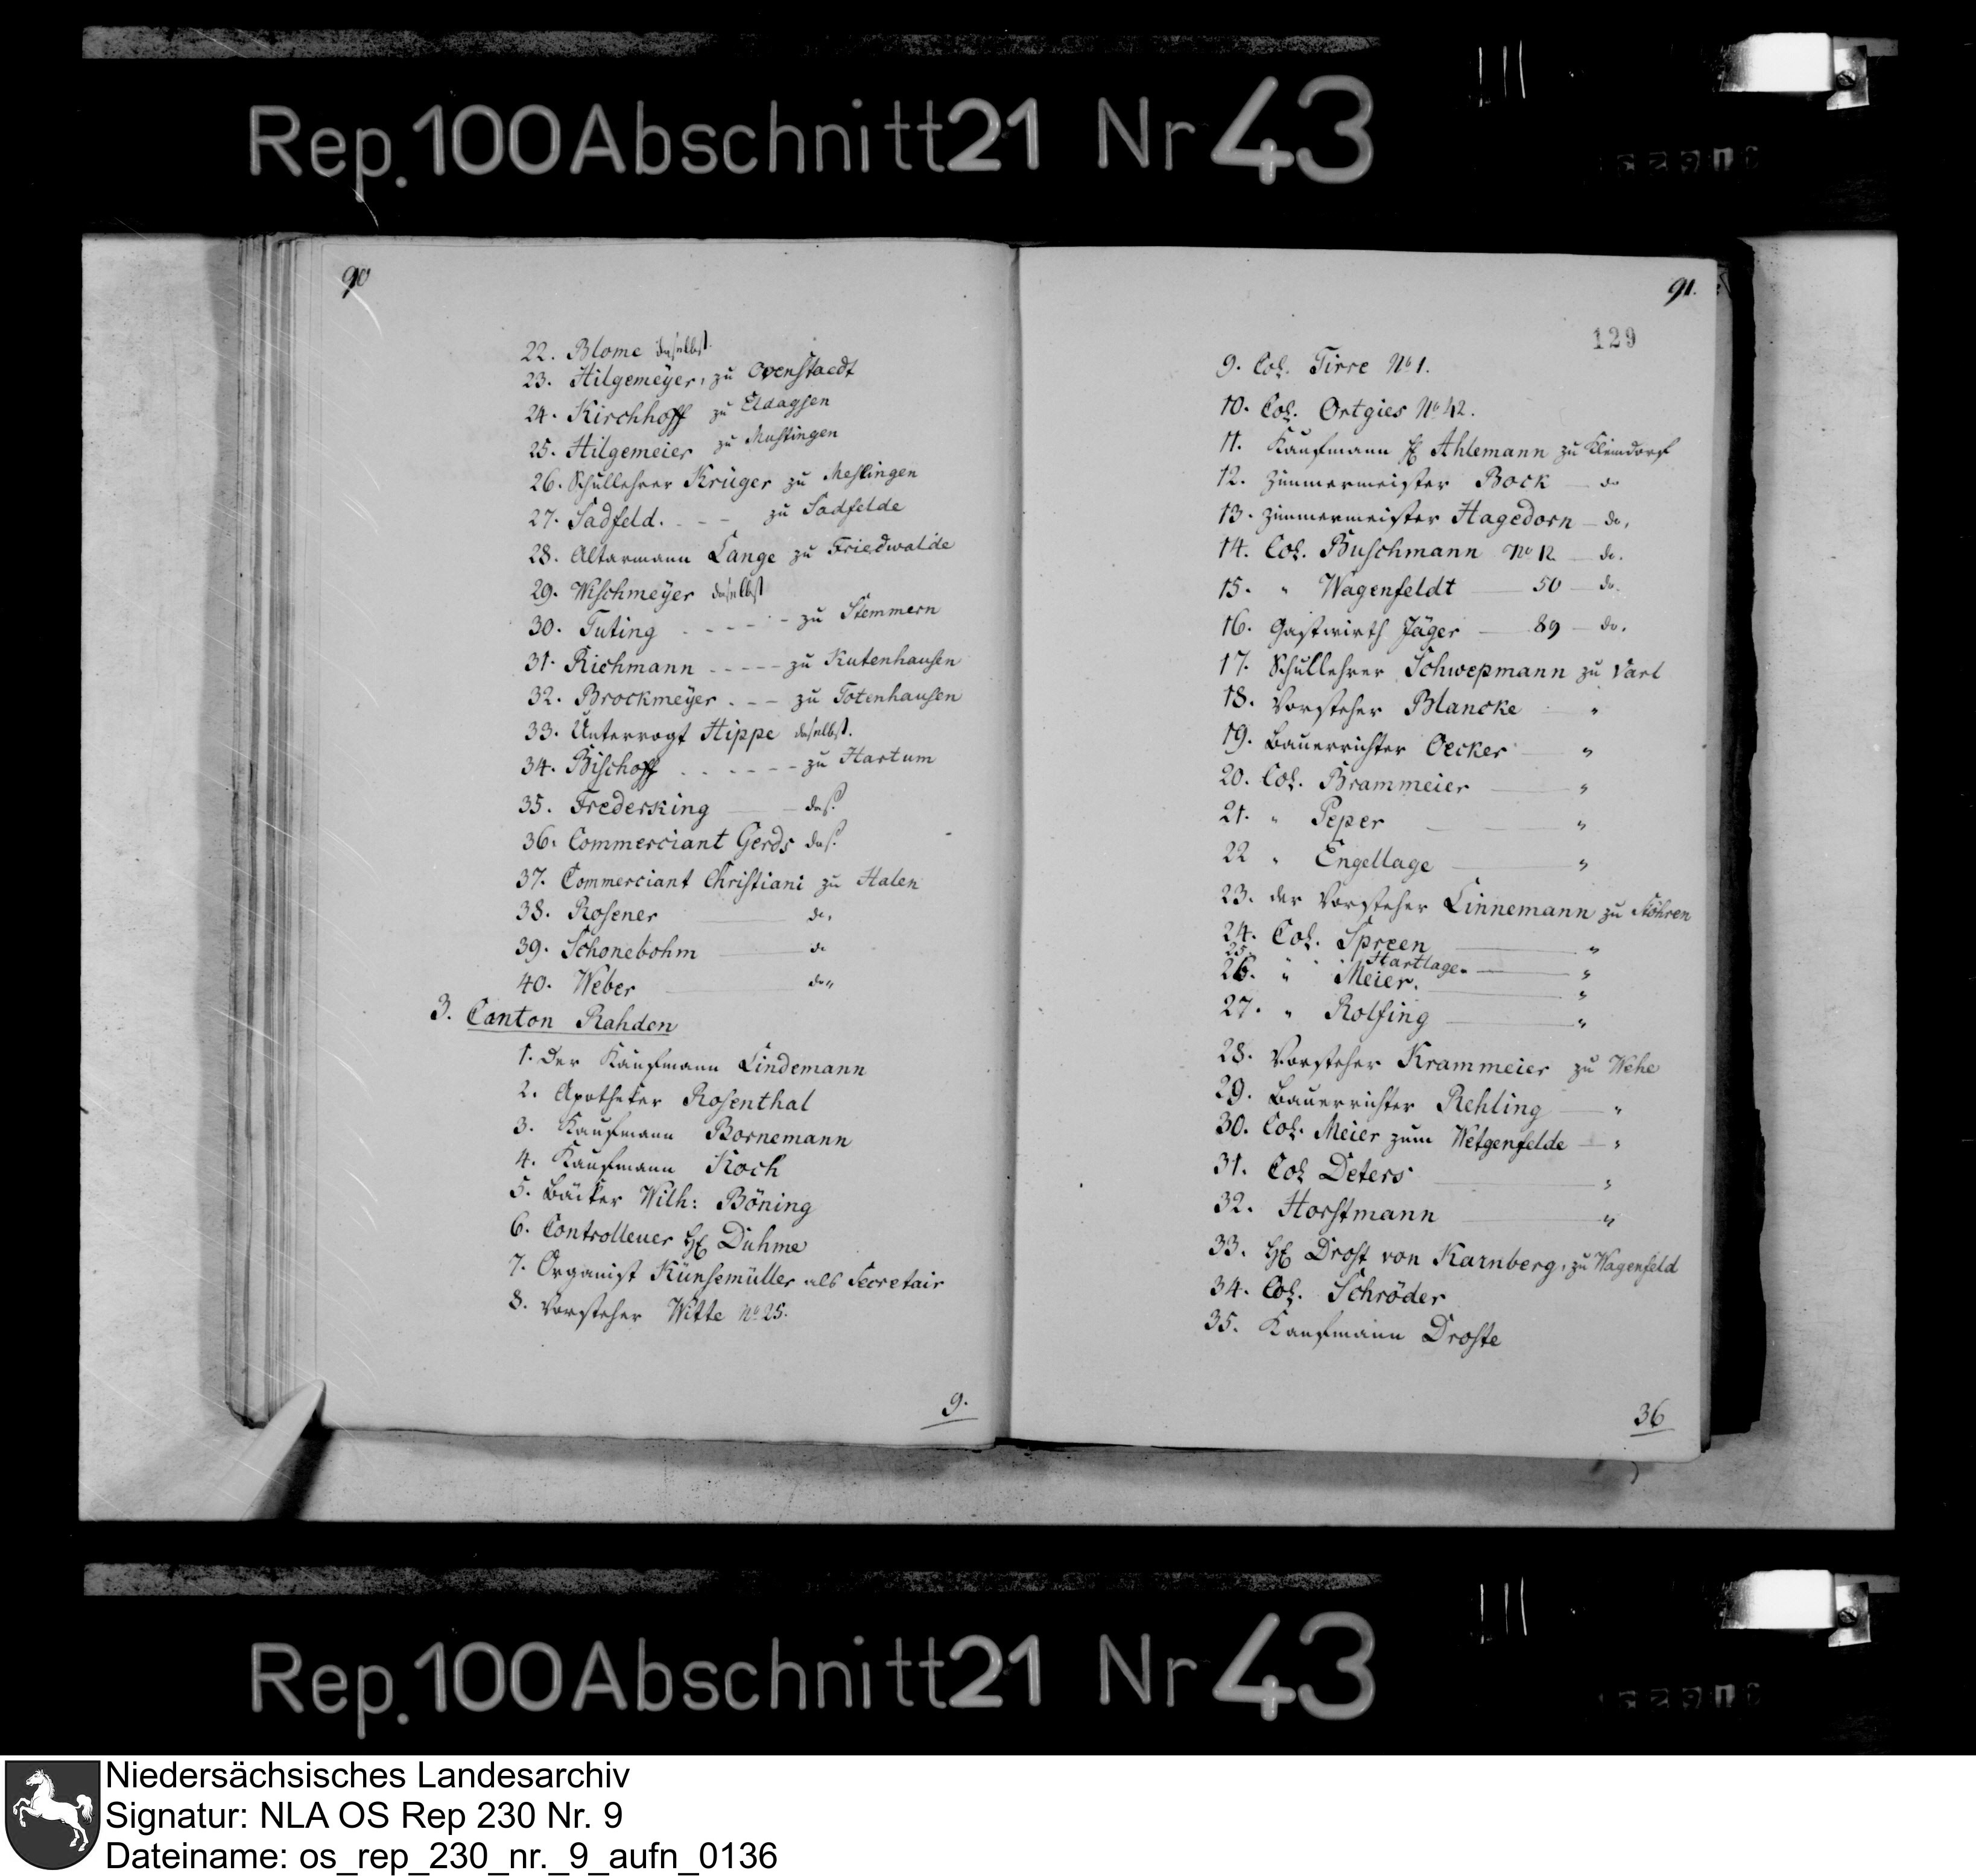 Rep. 100 Abschnitt 21 Nr 43
90
22. Blome daselbst.
23. Hilgemeÿer, zu Ovenstaedt
24. Kirchhoff zu Eldagsen
25. Hilgemeier zu Maslingen
26. Schullehrer Krüger zu Meslingen
27. Sadfeld. - - - zu Sadfelde
28. Altarmann Lange zu Friedwalde
29. Wischmeÿer daselbst
30. Tuting - - - - - zu Stemmern
31. Richmann - - - - - zu Kutenhausen
32. Brockmeÿer - - - zu Totenhausen
33. Untervogt Hippe daselbst.
34. Bischoff - - - - - - zu Hartum
35. Frederking — das.
36. Commerciant Gerds das.
37. Commerciant Christiani zu Halen
38. Rosener do.
39. Schonebohm — do
40. Weber — do
3. Canton Rahden
1. Der Kaufmann Lindemann
2. Apotheker Rosenthal
3. Kaufmann Bornemann
4. Kaufmann Koch
5. Bäcker Wilh: Böning
6. Controlleur H. Duhme
7. Organist Künsemüller als Secretair
8. Vorsteher Witte No 25.
9.
91.
129
9. Col. Tirre No 1.
10. Col. Ortgies No 42.
11. Kaufmann H. Ahlemann zu Kleindorf
12. Zimmermeister Bock — do
13. Zimmermeister Hagedorn — do.
14. Col. Buschmann No 12 — do.
15. " Wagenfeldt — 50 — do.
16. Gastwirth Jäger — 89 — do.
17. Schullehrer Schwepmann zu Varl
18. Vorsteher Blancke — "
19. Bauerrichter Oecker — "
20. Col. Brammeier — "
21. " Peper — "
22 " Engellage — "
23. der Vorsteher Linnemann zu Ströhen
24. Col. Spreen — "
25. " Hartlage — "
26. " Meier. — "
27. " Rolfing — "
28. Vorsteher Krammeier zu Wehe
29. Bauerrichter Rehling — "
30. Col. Meier zum Wetgenfelde — "
31. Col Deters — "
32. Horstmann — "
33. H. Drost von Karnberg, zu Wagenfeld
34. Col. Schröder
35. Kaufmann Droste
36
Rep. 100 Abschnitt 21 Nr 43
Niedersächsisches Landesarchiv
Signatur: NLA OS Rep 230 Nr. 9
Dateiname: os_rep_230_nr._9_aufn_0136